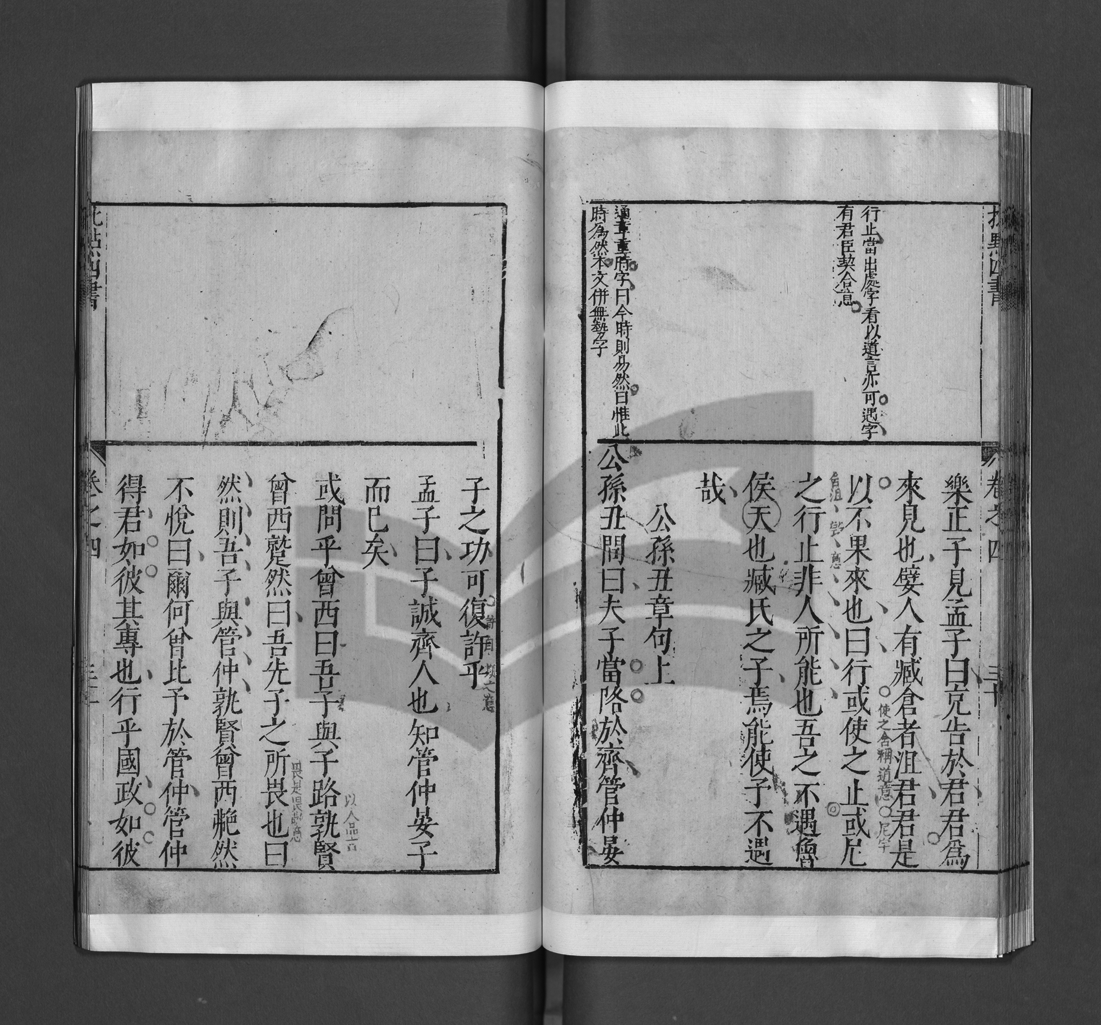 批點四書
卷之四
三十
行止當出處字看以道言亦可遇字
有君臣契合意
樂正子見孟子曰克告於君君為
來見也嬖人有臧倉者沮君君是
以不果來也曰行或使之止或尼
使之含稱道意
尼字
之行止非人所能也吾之不遇魯
侯天也臧氏之子焉能使予不遇
哉
公孫丑章句上
通章重時字曰今時則易然曰惟此
時為然本文併無勢字
公孫丑問曰夫子當路於齊管仲晏
子之功可復許乎
孟子曰子誠齊人也知管仲晏子
而已矣
或問乎曾西曰吾子與子路孰賢
以人品言
曾西蹵然曰吾先子之所畏也曰
然則吾子與管仲孰賢曾西艴然
不悅曰爾何曾比予於管仲管仲
得君如彼其專也行乎國政如彼
批點四書
卷之四